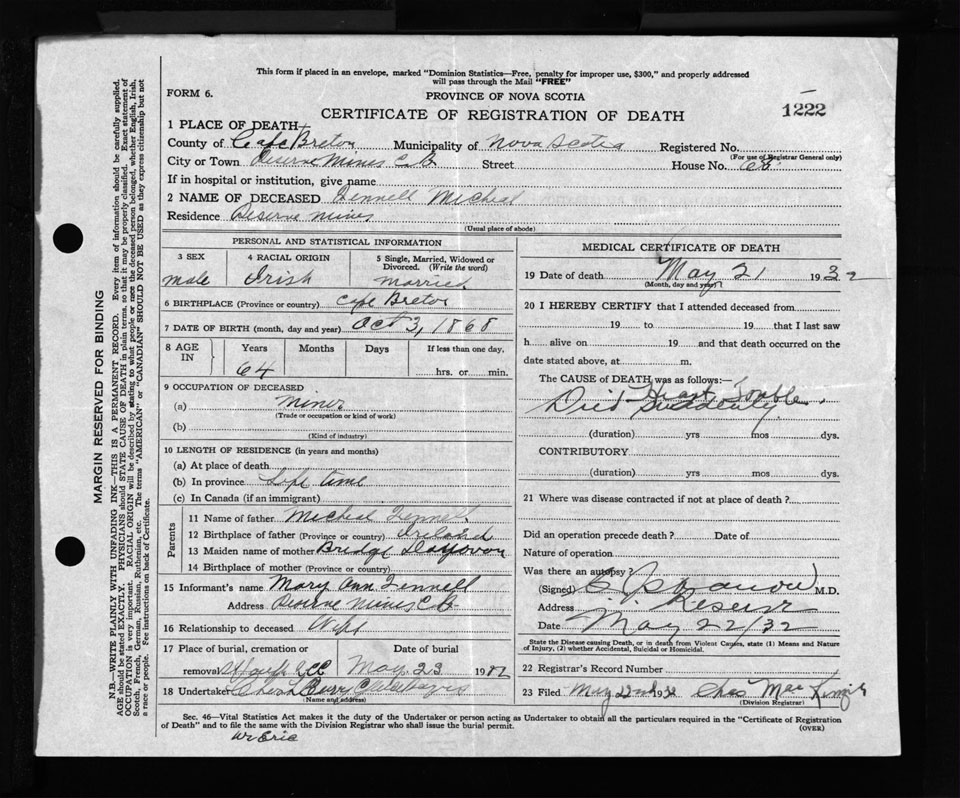 This form if placed in an envelope, marked "Dominion Statistics—Free, penalty for improper use, $300," and properly addressed
will pass through the Mail "FREE"
FORM 6.
PROVINCE OF NOVA SCOTIA
1222
CERTIFICATE OF REGISTRATION OF DEATH
1 PLACE OF DEATH
County of Cape Breton Municipality of Nova Scotia Registered No.
(For use of Registrar General only)
City or Town Reserve Mines C.B. Street House No.
If in hospital or institution, give name
2 NAME OF DECEASED Fennell Micheal
Residence Reserve Mines
(Usual place of abode)
PERSONAL AND STATISTICAL INFORMATION
3 SEX 4 RACIAL ORIGIN 5 Single, Married, Widowed or Divorced. (Write the word)
male Irish married
6 BIRTHPLACE (Province or country) Cape Breton
7 DATE OF BIRTH (month, day and year) Oct 3, 1868
8 AGE IN Years Months Days If less than one day,
64 hrs. or min.
9 OCCUPATION OF DECEASED
(a) miner
(Trade or occupation or kind of work)
(b)
(Kind of industry)
10 LENGTH OF RESIDENCE (in years and months)
(a) At place of death
(b) In province Life time
(c) In Canada (if an immigrant)
Parents
11 Name of father Micheal Fennell
12 Birthplace of father (Province or country) Ireland
13 Maiden name of mother
14 Birthplace of mother (Province or country)
15 Informant's name Mary Ann Fennell
Address Reserve Mines C.B.
16 Relationship to deceased Wife
17 Place of burial, cremation or Date of burial
removal May 23 19
18 Undertaker
(Name and address)
MEDICAL CERTIFICATE OF DEATH
19 Date of death May 21 1932
(Month, day and year)
20 I HEREBY CERTIFY that I attended deceased from
19 to 19 that I last saw
h alive on 19 and that death occurred on the
date stated above, at m.
The CAUSE of DEATH was as follows:—
Heart Trouble.
Died Suddenly
(duration) yrs mos dys.
CONTRIBUTORY
(duration) yrs mos dys.
21 Where was disease contracted if not at place of death?
Did an operation precede death? Date of
Nature of operation
Was there an autopsy?
(Signed) M.D.
Address Reserve
Date May 22/32
State the Disease causing Death, or in death from Violent Causes, state (1) Means and Nature
of Injury, (2) whether Accidental, Suicidal or Homicidal.
22 Registrar's Record Number
23 Filed May 22nd 1932 Chas
(Division Registrar)
Sec. 46—Vital Statistics Act makes it the duty of the Undertaker or person acting as Undertaker to obtain all the particulars required in the "Certificate of Registration
of Death" and to file the same with the Division Registrar who shall issue the burial permit. (OVER)
MARGIN RESERVED FOR BINDING
N.B.—WRITE PLAINLY WITH UNFADING INK—THIS IS A PERMANENT RECORD. Every item of information should be carefully supplied.
AGE should be stated EXACTLY. PHYSICIANS should STATE CAUSE OF DEATH in plain terms, so that it may be properly classified. Exact statement of
OCCUPATION is very important. RACIAL ORIGIN will be described by stating to what people or race the deceased person belonged, whether English, Irish,
Scotch, French, German, Russian, Ruthenian, etc. The terms "AMERICAN" or "CANADIAN" SHOULD NOT BE USED as they express citizenship but not
a race or people. See instructions on back of Certificate.